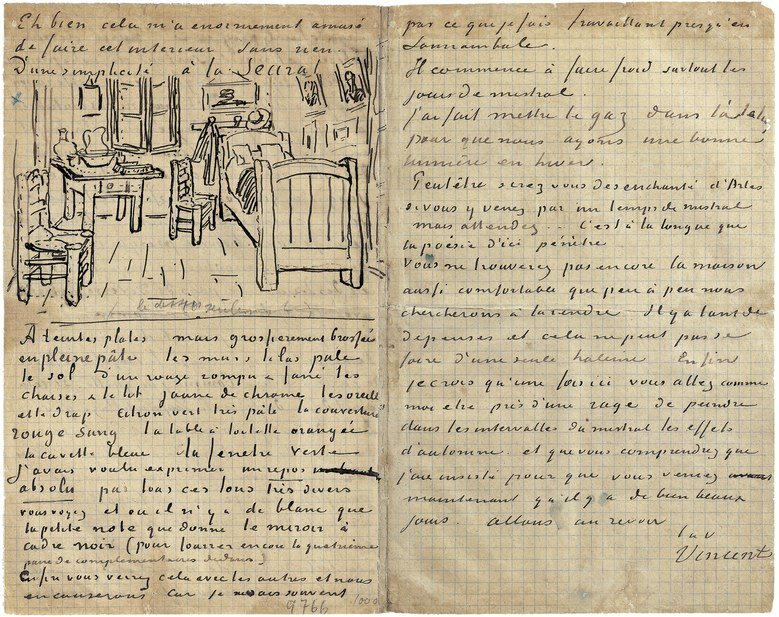 Eh bien cela m'a enormement amusé
de faire cet interieur sans rien.
D'une simplicité à la Seurat
A teintes plates mais grossierement brossées
en pleine pâte les murs lilas pale
le sol d'un rouge rompu & fané les
chaises & le lit jaune de chrome les oreillers
et le drap citron vert très pâle la couverture
rouge sang la table à toilette orangée
la cuvette bleue la fenetre verte
J'avais voulu exprimer un repos
absolu par tous ces tons très divers
vous voyez et ou il n'y a de blanc que
la petite note que donne le miroir à
cadre noir (pour fourrer encore la quatrième
paire de complementaires dedans)
Enfin vous verrez cela avec les autres et nous
en causerons car je ne sais souvent
9766
pas ce que je fais travaillant presqu'en
somnambule.
Il commence à faire froid surtout les
jours de mistral.
J'ai fait mettre le gaz dans
pour que nous ayons une bonne
lumière en hiver.
Peutêtre serez vous desenchanté d'Arles
si vous y venez par un temps de mistral
mais attendez... C'est à la longue que
la poésie d'ici penètre
Vous ne trouverez pas encore la maison
aussi comfortable que peu à peu nous
chercherons à la rendre Il y a tant de
depenses et cela ne peut pas se
faire d'une seule haleine Enfin
je crois qu'une fois ici vous allez comme
moi etre pris d'une rage de peindre
dans les intervalles du mistral les effets
d'automne. et que vous comprendrez que
j'aie insisté pour que vous veniez
maintenant qu'il y a de bien beaux
jours. allons au revoir
t. à v.
Vincent